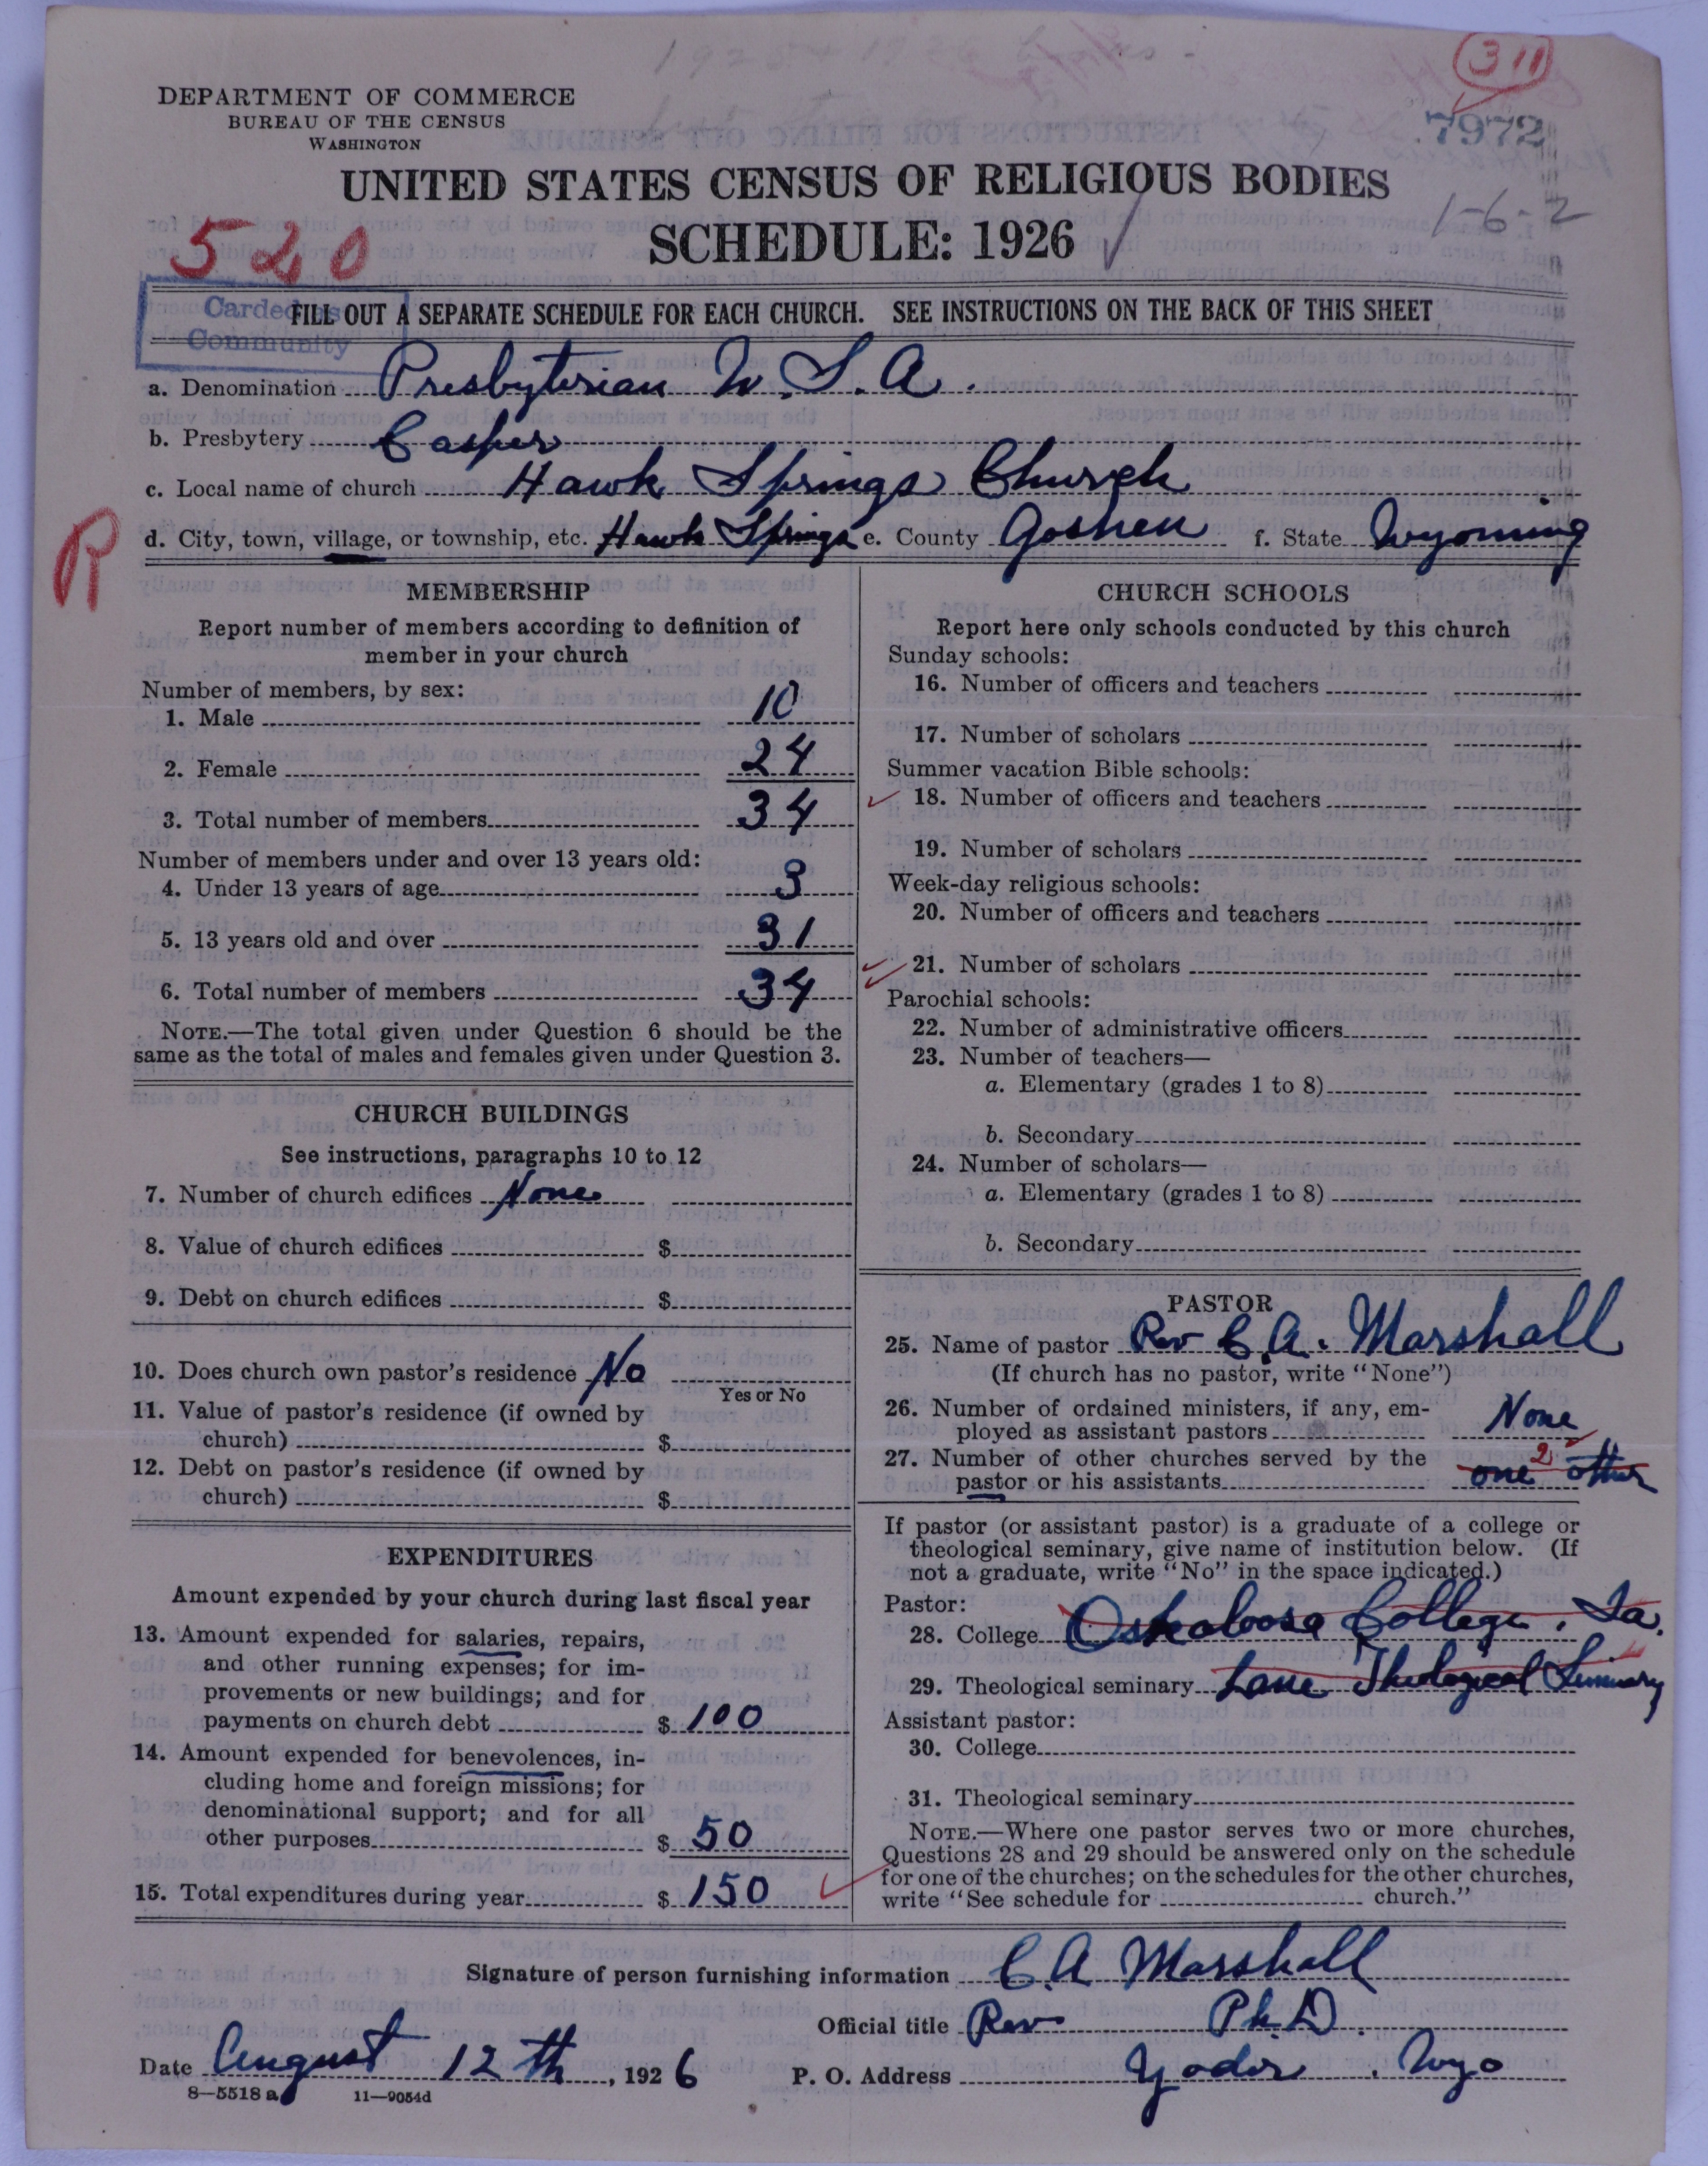 311
DEPARTMENT OF COMMERCE
BUREAU OF THE CENSUS
WASHINGTON
7972
UNITED STATES CENSUS OF RELIGIOUS BODIES
1-6-2
SCHEDULE: 1926
520
Carded as
Community
FILL OUT A SEPARATE SCHEDULE FOR EACH CHURCH. SEE INSTRUCTIONS ON THE BACK OF THIS SHEET
a. Denomination Presbyterian U.S.A.
b. Presbytery Casper
c. Local name of church Hawk Springs Church
R
d. City, town, village, or township, etc. Hawk Springs e. County Goshen f. State Wyoming
MEMBERSHIP
Report number of members according to definition of
member in your church
Number of members, by sex:
1. Male 10
2. Female 24
3. Total number of members 34
Number of members under and over 13 years old:
4. Under 13 years of age 3
5. 13 years old and over 31
6. Total number of members 34
NOTE.—The total given under Question 6 should be the
same as the total of males and females given under Question 3.
CHURCH BUILDINGS
See instructions, paragraphs 10 to 12
7. Number of church edifices None
8. Value of church edifices $
9. Debt on church edifices $
10. Does church own pastor's residence No
Yes or No
11. Value of pastor's residence (if owned by
church) $
12. Debt on pastor's residence (if owned by
church) $
EXPENDITURES
Amount expended by your church during last fiscal year
13. Amount expended for salaries, repairs,
and other running expenses; for im-
provements or new buildings; and for
payments on church debt $ 100
14. Amount expended for benevolences, in-
cluding home and foreign missions; for
denominational support; and for all
other purposes $ 50
15. Total expenditures during year $ 150
CHURCH SCHOOLS
Report here only schools conducted by this church
Sunday schools:
16. Number of officers and teachers
17. Number of scholars
Summer vacation Bible schools:
18. Number of officers and teachers
19. Number of scholars
Week-day religious schools:
20. Number of officers and teachers
21. Number of scholars
Parochial schools:
22. Number of administrative officers
23. Number of teachers—
a. Elementary (grades 1 to 8)
b. Secondary
24. Number of scholars—
a. Elementary (grades 1 to 8)
b. Secondary
PASTOR
25. Name of pastor Rev C.A. Marshall
(If church has no pastor, write "None")
26. Number of ordained ministers, if any, em-
ployed as assistant pastors None
27. Number of other churches served by the
pastor or his assistants one 2 other
If pastor (or assistant pastor) is a graduate of a college or
theological seminary, give name of institution below. (If
not a graduate, write "No" in the space indicated.)
Pastor:
28. College Oskaloosa College, Ia.
29. Theological seminary Lane Theological Seminary
Assistant pastor:
30. College
31. Theological seminary
NOTE.—Where one pastor serves two or more churches,
Questions 28 and 29 should be answered only on the schedule
for one of the churches; on the schedules for the other churches,
write "See schedule for church."
Signature of person furnishing information C.A. Marshall
Official title Rev Ph.D.
Date August 12th, 1926 P. O. Address Yoder, Wyo
8—5518 a 11—9054d